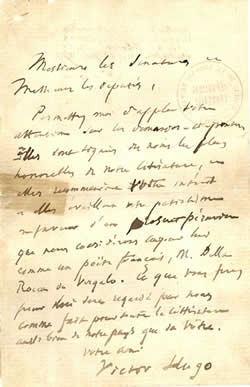 Messieurs les Senateurs, et
Messieurs les deputés,
Permettez moi d'appeler votre
attention sur les
elles sont signées de nous les plus
honorables de notre littérature, et
elles recommandent votre intérêt
et elles éveillent votre patriotisme
en faveur d'un péruvien
que nous considérons aujourd'hui
comme un poète français, M. Della
Rocca de Vergalo. Ce que vous ferez
pour lui sera regardé par nous
comme fait pour toute la littérature
aussi bien de notre pays que du Votre.
Votre ami
Victor Hugo